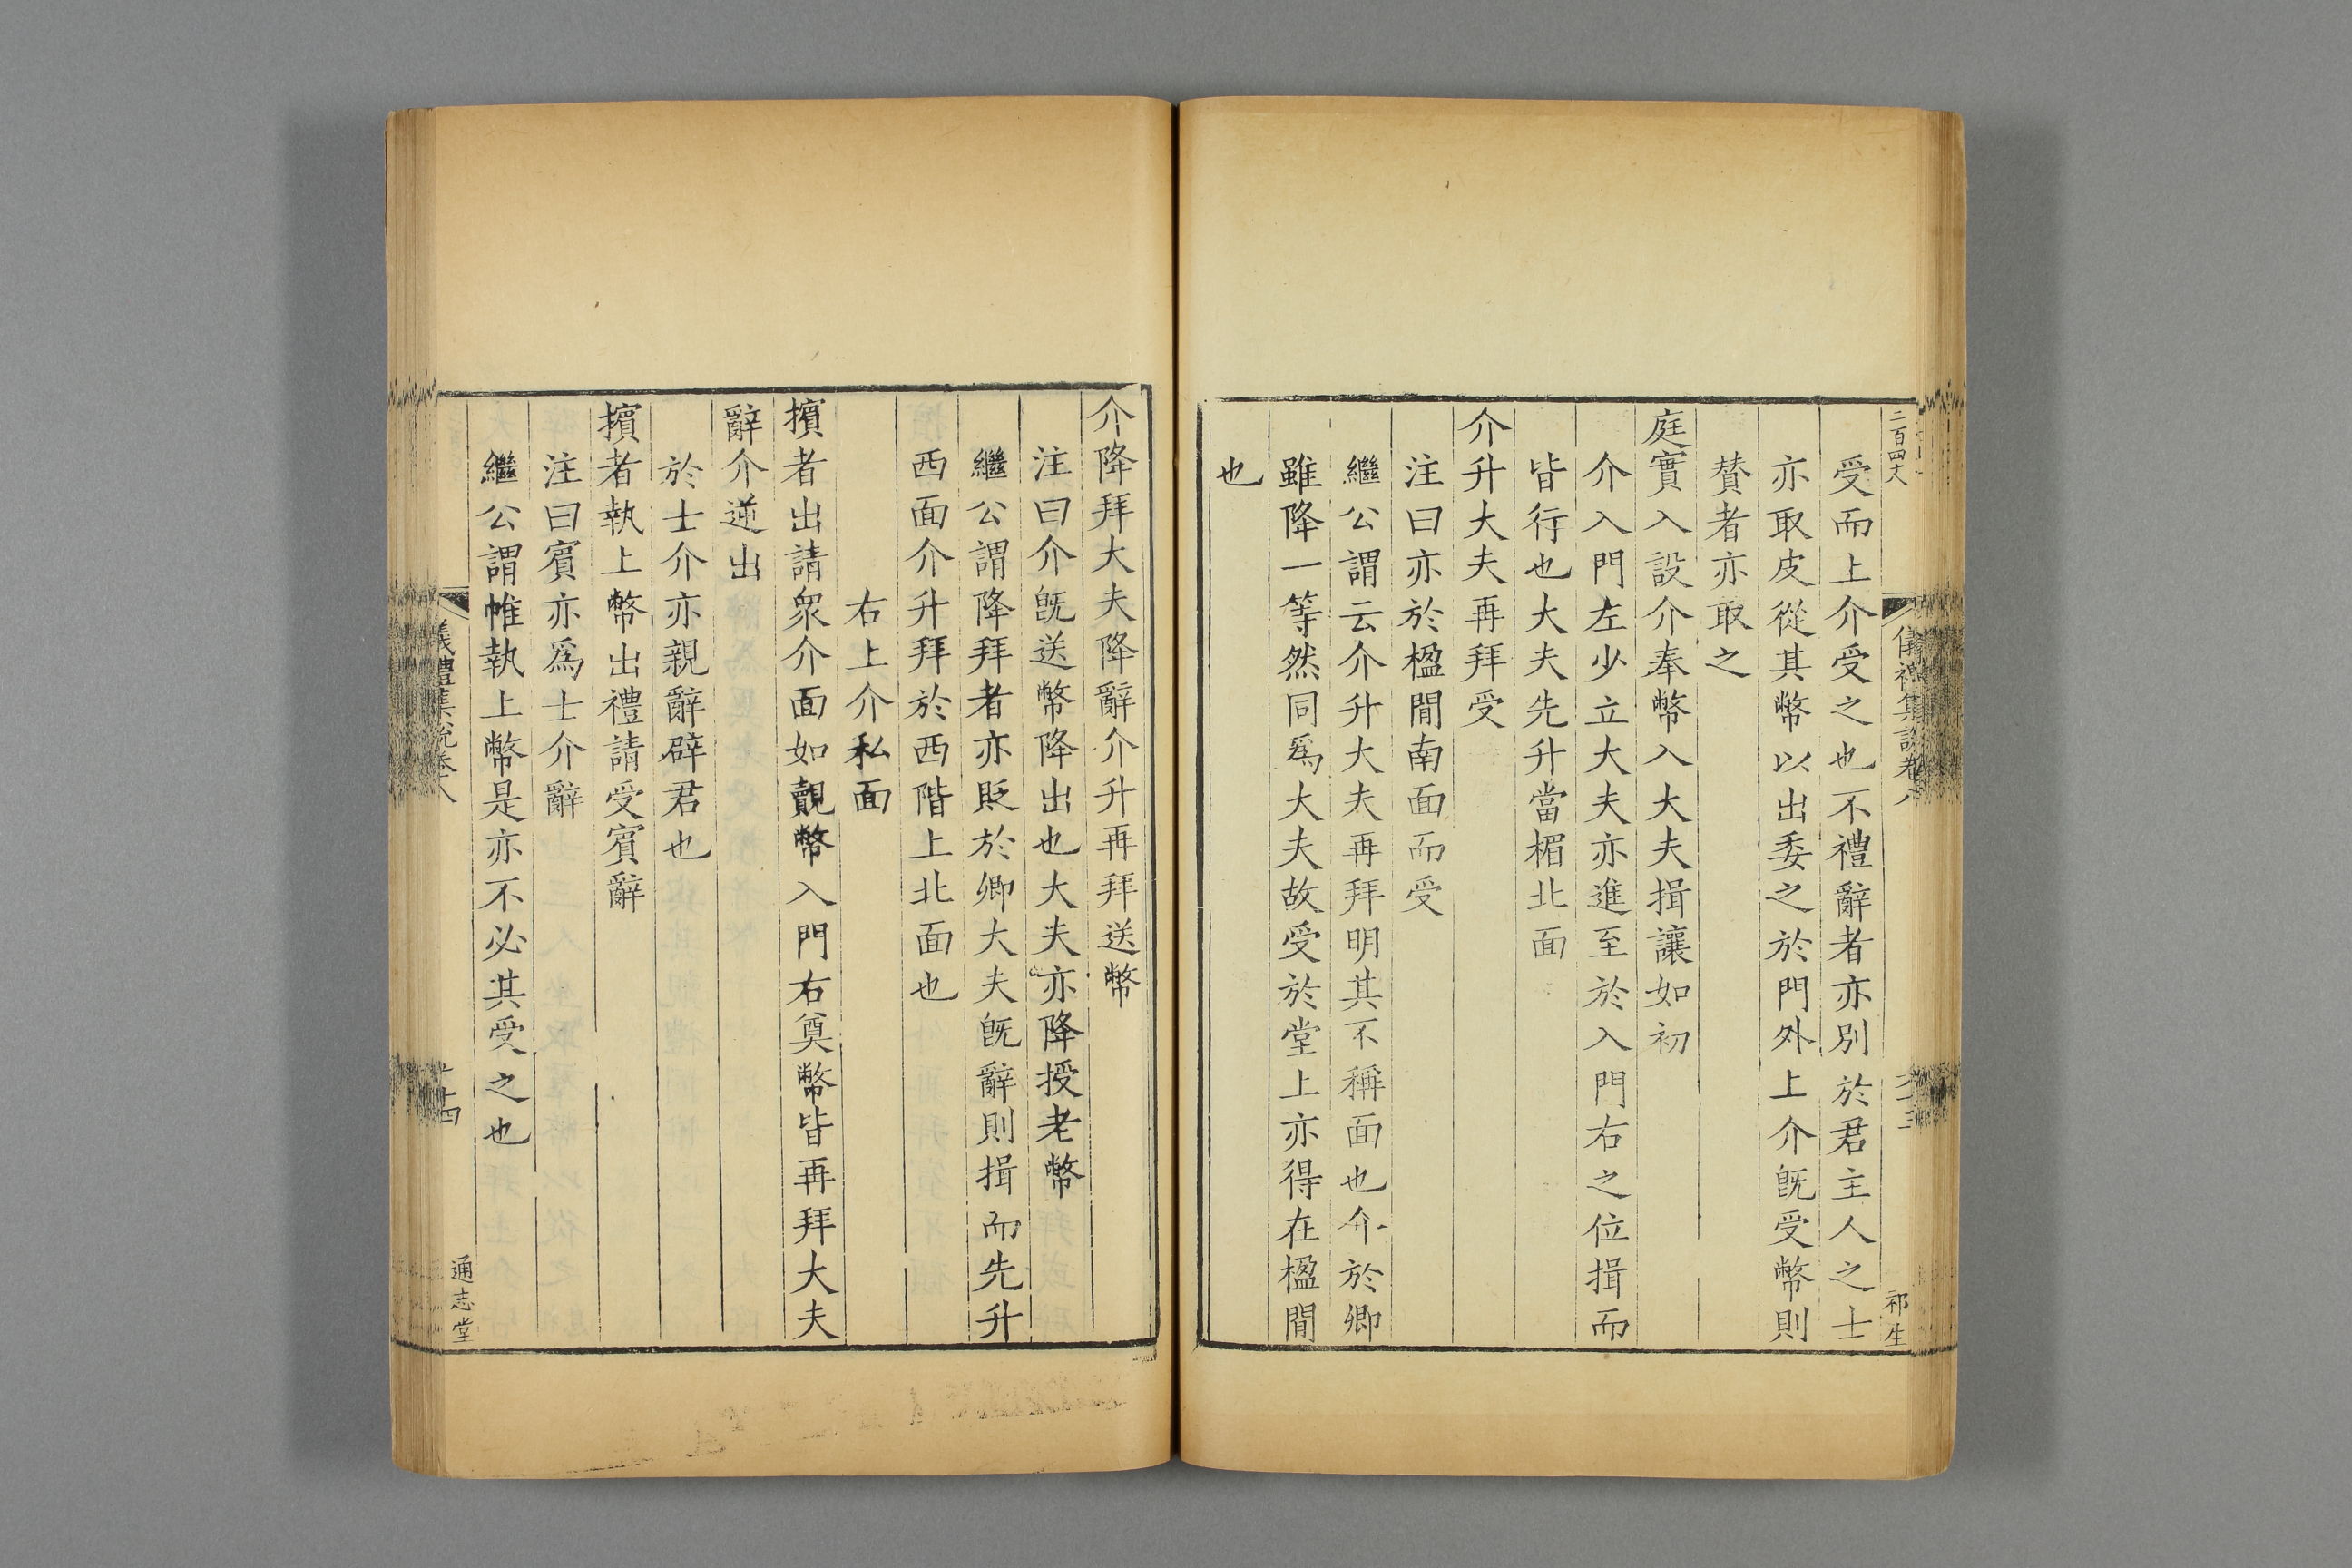 二百四大
儀禮集說卷八
祁生
受而上介受之也不禮辭者亦別於君主人之士
亦取皮從其幣以出委之於門外上介旣受幣則
賛者亦取之
庭實入設介奉幣入大夫揖讓如初
介入門左少立大夫亦進至於入門右之位揖而
皆行也大夫先升當楣北面
介升大夫再拜受
注曰亦於楹間南面而受
繼公謂云介升大夫再拜明其不稱面也介於卿
雖降一等然同爲大夫故受於堂上亦得在楹間
也
介降拜大夫降辭介升再拜送幣
注曰介旣送幣降出也大夫亦降授老幣
繼公謂降拜者亦貶於卿大夫旣辭則揖而先升
西面介升拜於西階上北面也
右上介私面
擯者出請衆介面如覿幣入門右奠幣皆再拜大夫
辭介逆出
於士介亦親辭辟君也
擯者執上幣出禮請受賓辭
注曰賓亦爲士介辭
繼公謂惟執上幣是亦不必其受之也
儀禮集說卷八
通志堂